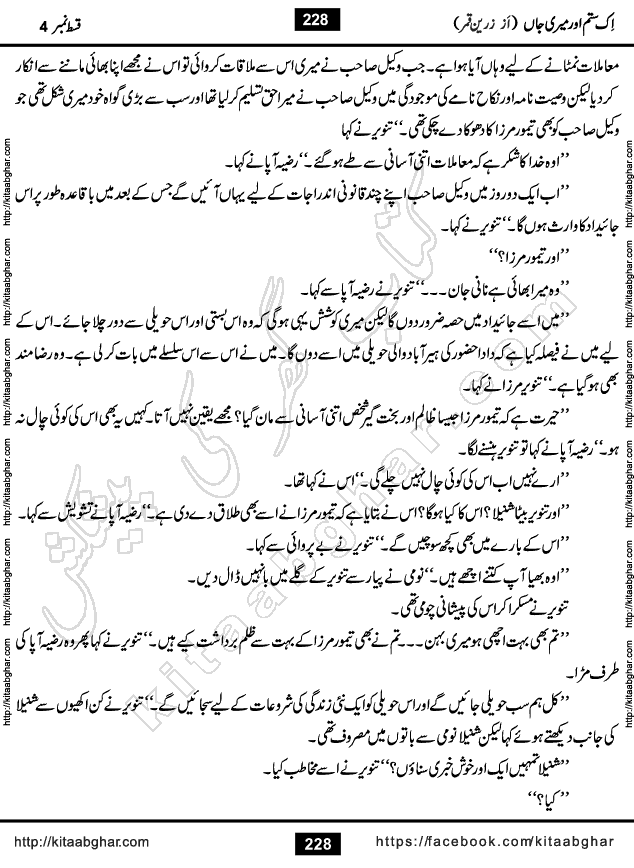 اِک ستم اور میری جاں (از زرین قمر)
228
قسط نمبر 4
معاملات نمٹانے کے لیے وہاں آیا ہوا ہے۔ جب وکیل صاحب نے میری اس سے ملاقات کروائی تو اس نے مجھے اپنا بھائی ماننے سے انکار
کر دیا لیکن وصیت نامہ اور نکاح نامے کی موجودگی میں وکیل صاحب نے میرا حق تسلیم کر لیا تھا اور سب سے بڑی گواہ خود میری شکل تھی جو
وکیل صاحب کو بھی تیمور مرزا کا دھوکا دے چکی تھی۔‘‘ تنویر نے کہا
’’اوہ خدا کا شکر ہے کہ معاملات اتنی آسانی سے طے ہو گئے۔‘‘ رضیہ آپا نے کہا۔
’’اب ایک دو روز میں وکیل صاحب اپنے چند قانونی اندراجات کے لیے یہاں آئیں گے جس کے بعد میں باقاعدہ طور پر اس
جائیداد کا وارث ہوں گا۔‘‘ تنویر نے کہا۔
’’اور تیمور مرزا؟‘‘
’’وہ میرا بھائی ہے نانی جان۔۔۔‘‘ تنویر نے رضیہ آپا سے کہا۔
’’میں اسے جائیداد میں حصہ ضرور دوں گا لیکن میری کوشش یہی ہوگی کہ وہ اس بستی اور اس حویلی سے دور چلا جائے۔ اس کے
لیے میں نے فیصلہ کیا ہے کہ دادا حضور کی ہیرآباد والی حویلی میں اسے دوں گا۔ میں نے اس سے اس سلسلے میں بات کر لی ہے۔ وہ رضامند
بھی ہو گیا ہے۔‘‘ تنویر مرزا نے کہا۔
’’حیرت ہے کہ تیمور مرزا جیسا ظالم اور سخت گیر شخص اتنی آسانی سے مان گیا؟ مجھے یقین نہیں آتا۔ کہیں یہ بھی اس کی کوئی چال نہ
ہو۔‘‘ رضیہ آپا نے کہا تو تنویر ہنسنے لگا۔
’’ارے نہیں اب اس کی کوئی چال نہیں چلے گی۔‘‘ اس نے کہا تھا۔
’’اور تنویر بیٹا شنیلا؟ اس کا کیا ہوگا؟ اس نے بتایا ہے کہ تیمور مرزا نے اسے بھی طلاق دے دی ہے۔‘‘ رضیہ آپا نے تشویش سے کہا۔
’’اس کے بارے میں بھی کچھ سوچیں گے۔‘‘ تنویر نے بے پروائی سے کہا۔
’’اوہ بھیا آپ کتنے اچھے ہیں۔‘‘ نومی نے پیار سے تنویر کے گلے میں بانہیں ڈال دیں۔
تنویر نے مسکرا کر اس کی پیشانی چومی تھی۔
’’تم بھی بہت اچھی ہو میری بہن۔۔۔ تم نے بھی تیمور مرزا کے بہت سے ظلم برداشت کیے ہیں۔‘‘ تنویر نے کہا پھر وہ رضیہ آپا کی
طرف مڑا۔
’’کل ہم سب حویلی جائیں گے اور اس حویلی کو ایک نئی زندگی کی شروعات کے لیے سجائیں گے۔‘‘ تنویر نے کن اکھیوں سے شنیلا
کی جانب دیکھتے ہوئے کہا لیکن شنیلا نومی سے باتوں میں مصروف تھی۔
’’شنیلا تمہیں ایک اور خوش خبری سناؤں؟‘‘ تنویر نے اسے مخاطب کیا۔
’’کیا؟‘‘
کتاب گھر کی پیشکش
kitaabghar.com
http://kitaabghar.com
http://kitaabghar.com
http://kitaabghar.com
http://kitaabghar.com
http://kitaabghar.com
http://kitaabghar.com
http://kitaabghar.com
http://kitaabghar.com
http://kitaabghar.com
http://kitaabghar.com
http://kitaabghar.com
http://kitaabghar.com
http://kitaabghar.com
228
https://facebook.com/kitaabghar